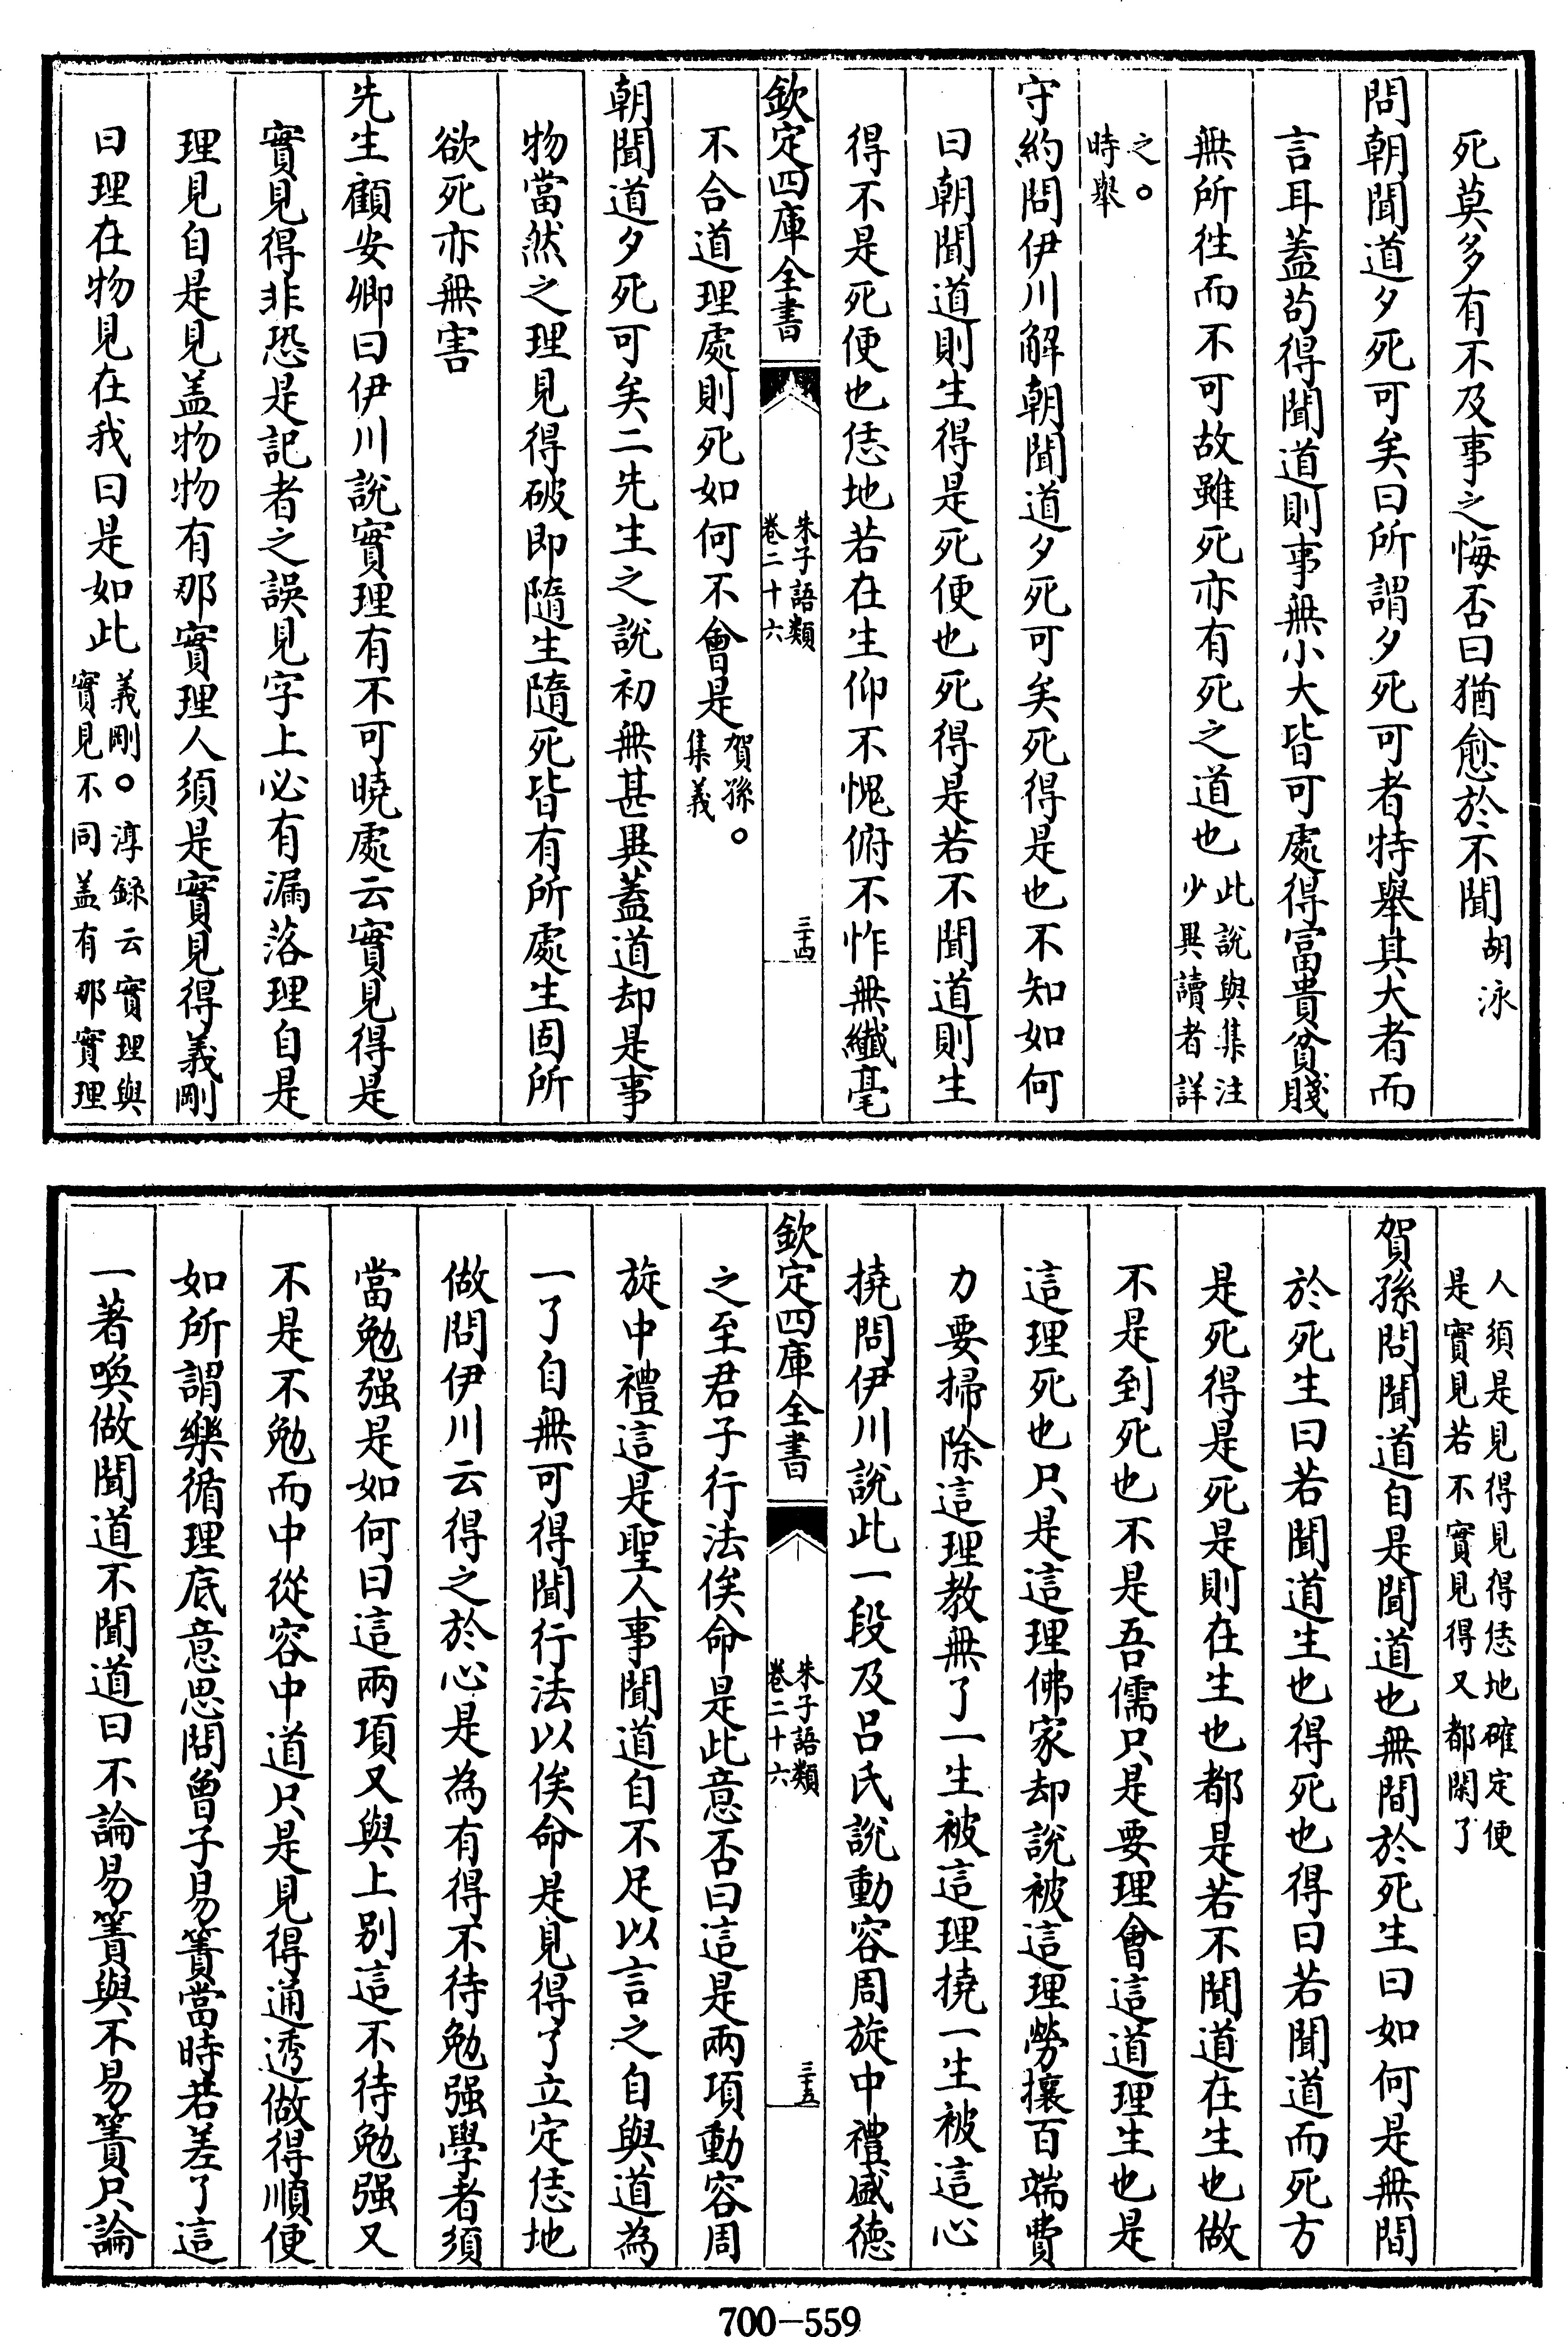 死莫多有不及事之悔否曰猶愈於不聞胡泳
問朝聞道夕死可矣曰所謂夕死可者特舉其大者而
言耳蓋茍得聞道則事無小大皆可處得富貴貧賤
無所徃而不可故雖死亦有死之道也此說與集注
少異讀者詳
之○
時舉
守約問伊川解朝聞道夕死可矣死得是也不知如何
曰朝聞道則生得是死便也死得是若不聞道則生
得不是死便也恁地若在生仰不愧俯不怍無纎毫
欽定四庫全書
朱子語類
卷二十六
三十四
不合道理處則死如何不會是賀孫○
集義
朝聞道夕死可矣二先生之說初無甚異蓋道却是事
物當然之理見得破即隨生隨死皆有所處生固所
欲死亦無害
先生顧安卿曰伊川說實理有不可曉處云實見得是
實見得非恐是記者之誤見字上必有漏落理自是
理見自是見盖物物有那實理人須是實見得義剛
曰理在物見在我曰是如此義剛○淳録云實理與
實見不同盖有那實理
人須是見得見得恁地確定便
是實見若不實見得又都閑了
賀孫問聞道自是聞道也無間於死生曰如何是無間
於死生曰若聞道生也得死也得曰若聞道而死方
是死得是死是則在生也都是若不聞道在生也做
不是到死也不是吾儒只是要理會這道理生也是
這理死也只是這理佛家却說被這理勞攘百端費
力要掃除這理教無了一生被這理撓一生被這心
撓問伊川說此一段及吕氏說動容周旋中禮盛德
欽定四庫全書
朱子語類
卷二十六
三十五
之至君子行法俟命是此意否曰這是兩項動容周
旋中禮這是聖人事聞道自不足以言之自與道為
一了自無可得聞行法以俟命是見得了立定恁地
做問伊川云得之於心是為有得不待勉强學者須
當勉强是如何曰這兩項又與上别這不待勉强又
不是不勉而中從容中道只是見得通透做得順便
如所謂樂循理底意思問曾子易簀當時若差了這
一著喚做聞道不聞道曰不論易簀與不易簀只論
700-559